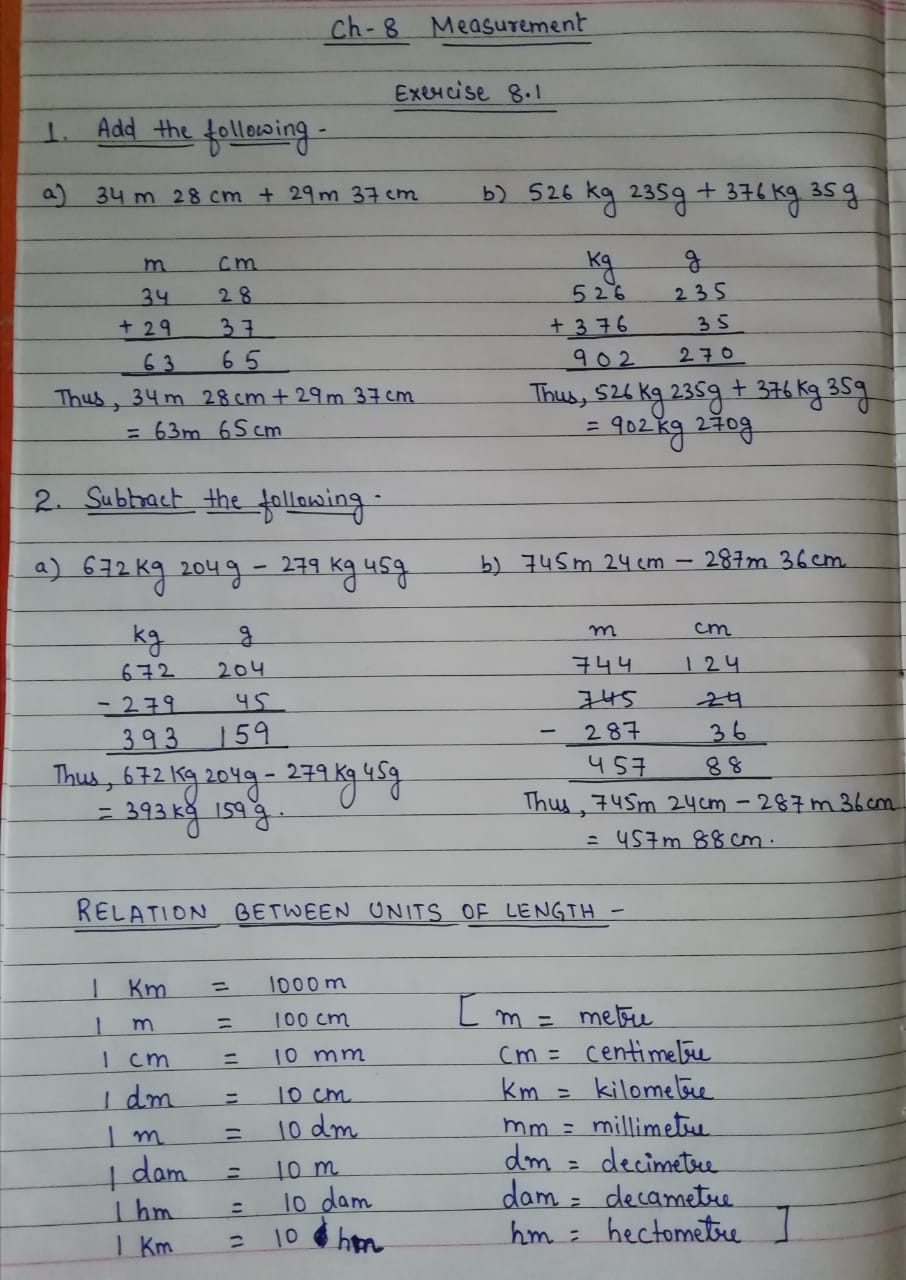 Ch-8 Measurement
Exercise 8.1
1. Add the following -
a) 34 m 28 cm + 29 m 37 cm
b) 526 kg 235g + 376 kg 35 g
m cm
34 28
+ 29 37
63 65
Thus, 34m 28cm + 29m 37cm
= 63m 65cm
Kg g
526 235
+ 376 35
902 270
Thus, 526 Kg 235g + 376 Kg 35g
= 902 kg 270g
2. Subtract the following -
a) 672 kg 204 g - 279 kg 45g
b) 745m 24 cm - 287m 36cm
kg g
672 204
- 279 45
393 159
Thus, 672 Kg 204g - 279 Kg 45g
= 393 kg 159 g.
m cm
744 124
745 24
- 287 36
457 88
Thus, 745m 24cm - 287 m 36cm
= 457m 88cm.
RELATION BETWEEN UNITS OF LENGTH -
1 Km = 1000 m
1 m = 100 cm
1 cm = 10 mm
1 dm = 10 cm
1 m = 10 dm
1 dam = 10 m
1 hm = 10 dam
1 Km = 10 hm
[ m = metre
cm = centimetre
Km = kilometre
mm = millimetre
dm = decimetre
dam = decametre
hm = hectometre ]